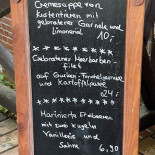 Cremesuppe von
Küstentieren mit
gebratener Garnele und
Limonenöl
10,-
* * * * * * * * *
Gebratenes Meerbarben-
filet
auf Gurken-Tomatengemüse
und Kartoffelpüree
24,-
* * * * * * * * *
Marinierte Erdbeeren
mit zwei Kugeln
Vanilleeis und
Sahne 6,90